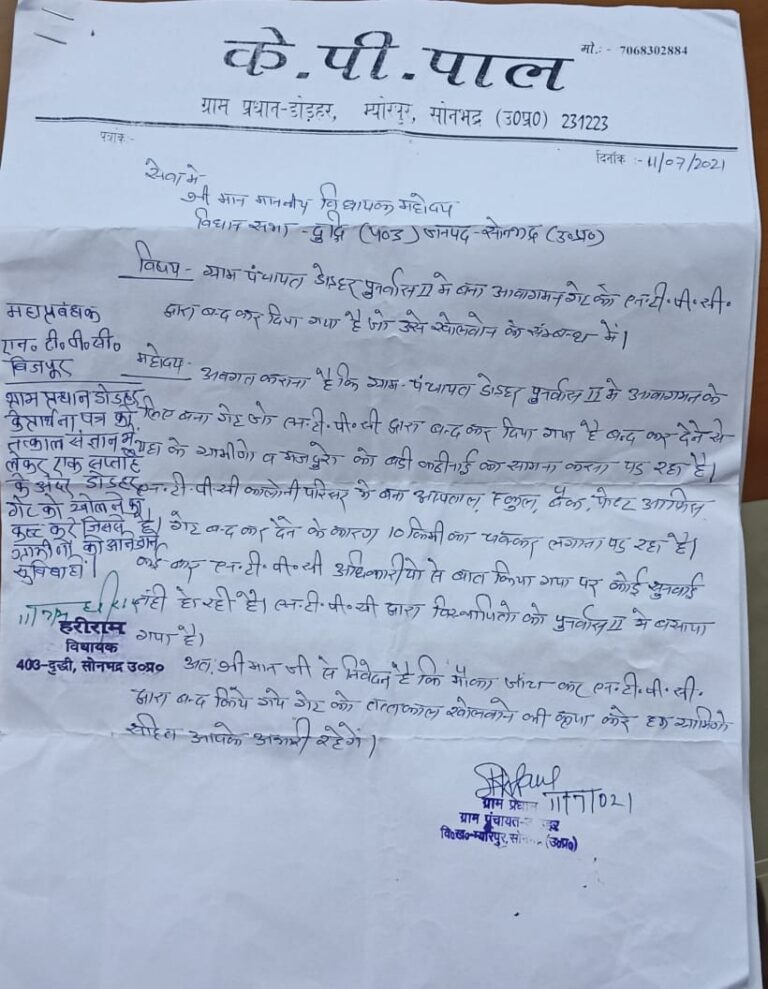 मो.:- 7068302884
के.पी.पाल
ग्राम प्रधान-डोडहर, म्योरपुर, सोनभद्र (उ0प्र0) 231223
पत्रांक:-
दिनांक :- 11/07/2021
सेवा मे
श्री मान माननीय विधायक महोदय
विधान सभा - दुद्धि (403) जनपद - सोनभद्र (उ०प्र०)
विषय - ग्राम पंचायत डोडहर पुनर्वास II मे बना आवागमन गेट को एन.टी.पी.सी.
द्वारा बन्द कर दिया गया है जो उसे खोलवाने के सम्बन्ध में।
महोदय - अवगत कराना है कि ग्राम-पंचायत डोडहर पुनर्वास II मे आवागमन के
लिए बना गेट जो एन.टी.पी.सी द्वारा बन्द कर दिया गया है बन्द कर देने से
यहा के ग्रामीणो व मजदुरो को बडी कठीनाई का सामना करना पड रहा है।
एन.टी.पी.सी कालोनी परिसर मे बना अस्पताल, स्कुल, बैंक, पोस्ट आफिस
है। गेट बन्द कर देने के कारण 10 किमी का चक्कर लगाना पड रहा है।
कई बार एन.टी.पी.सी अधिकारीयो से बात किया गया पर कोई सुनवाई
नही हो रही है। एन.टी.पी.सी द्वारा विस्थापितो को पुनर्वास II मे बसाया
गया है।
अत, श्री मान जी से निवेदन है कि मौका जांच कर एन.टी.पी.सी.
द्वारा बन्द किये गये गेट को तत्काल खोलवाने की कृपा करे हम ग्रामिणो
सहित आपके अभारी रहेगें।
महाप्रबंधक
एन० टी० पी० सी०
बिजपुर
ग्राम प्रधान डोडहर
के प्रार्थना पत्र को
तत्काल संज्ञान में
लेकर एक सप्ताह
के अंदर डोडहर
गेट को खोलने का
कष्ट करें जिससे
ग्रामीणों को आने जाने
सुविधा हो।
हरीराम
विधायक
403-दुद्धी, सोनभद्र उ०प्र०
11/7/021
ग्राम प्रधान
ग्राम पंचायत-
वि०ख०-म्योरपुर, (उ०प्र०)